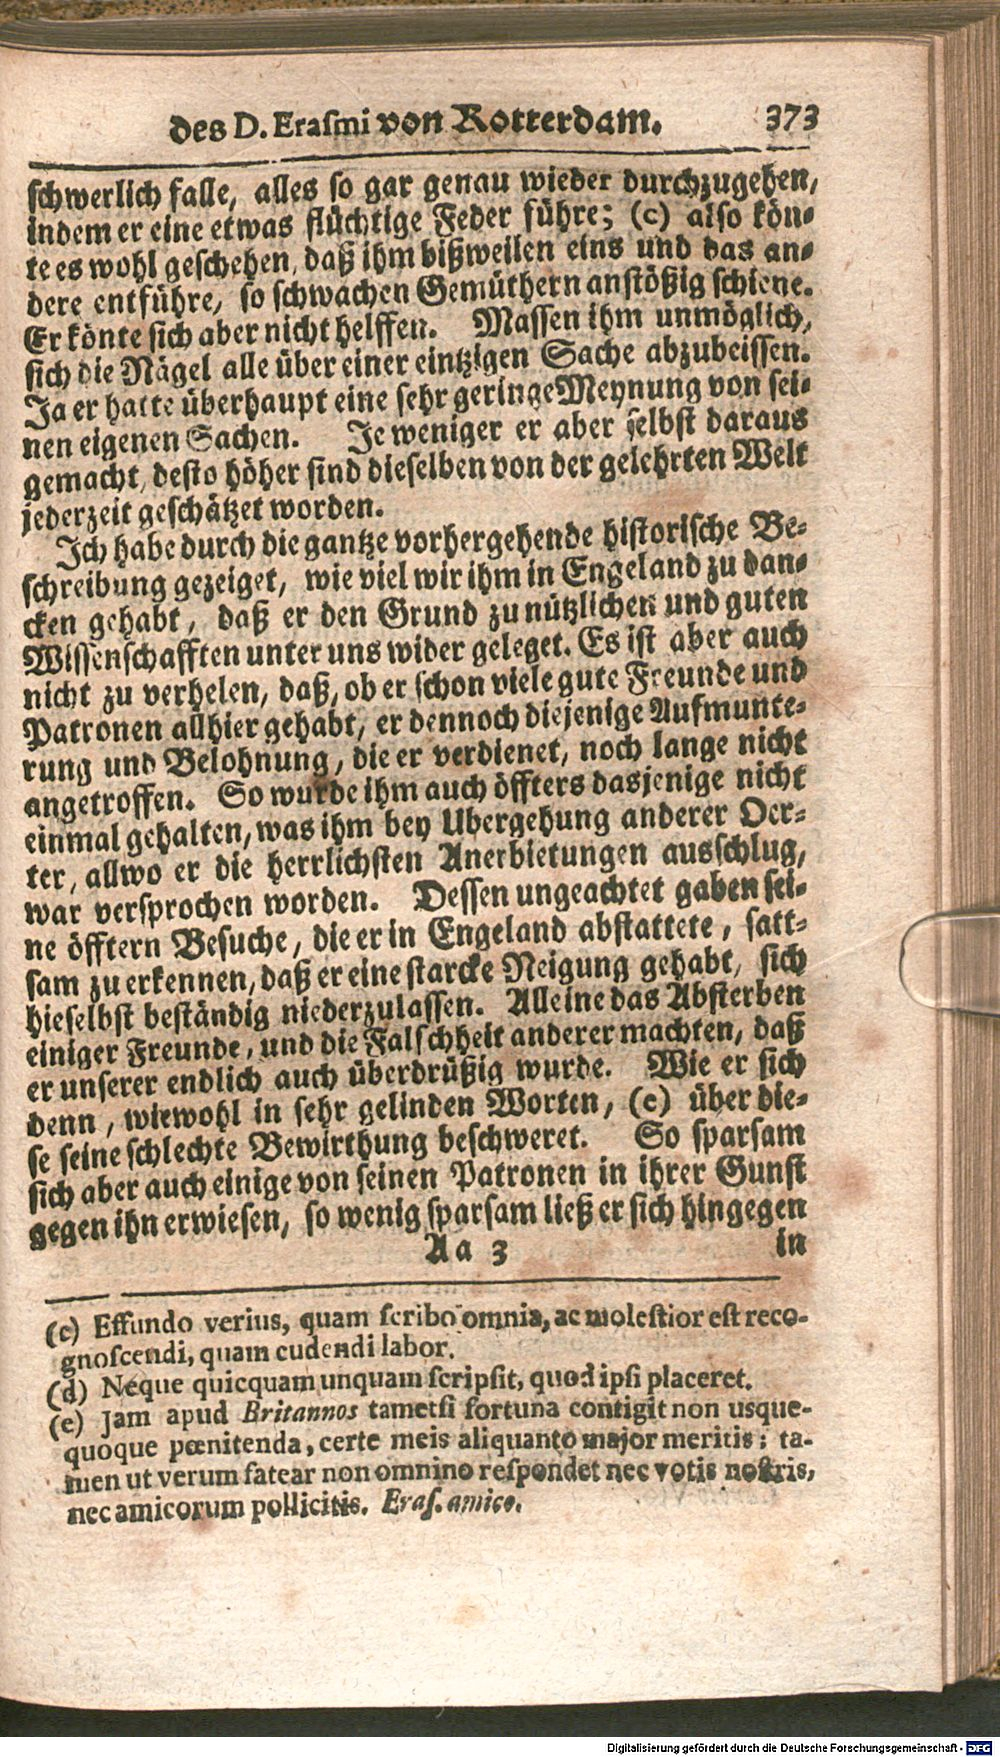 des D. Erasmi von Rotterdam. 373
schwerlich falle, alles so gar genau wieder durchzugehen,
indem er eine etwas flüchtige Feder führe; (c) also kön-
te es wohl geschehen, daß ihm bißweilen eins und das an-
dere entführe, so schwachen Gemüthern anstößig schiene.
Er könte sich aber nicht helffen. Massen ihm unmöglich,
sich die Nägel alle über einer eintzigen Sache abzubeissen.
Ja er hatte überhaupt eine sehr geringe Meynung von sei-
nen eigenen Sachen. Je weniger er aber selbst daraus
gemacht, desto höher sind dieselben von der gelehrten Welt
jederzeit geschätzet worden.
Ich habe durch die gantze vorhergehende historische Be-
schreibung gezeiget, wie viel wir ihm in Engeland zu dan-
cken gehabt, daß er den Grund zu nützlichen und guten
Wissenschafften unter uns wider geleget. Es ist aber auch
nicht zu verhelen, daß, ob er schon viele gute Freunde und
Patronen allhier gehabt, er dennoch diejenige Aufmunte-
rung und Belohnung, die er verdienet, noch lange nicht
angetroffen. So wurde ihm auch öffters dasjenige nicht
einmal gehalten, was ihm bey Ubergehung anderer Oer-
ter, allwo er die herrlichsten Anerbietungen ausschlug,
war versprochen worden. Dessen ungeachtet gaben sei-
ne öfftern Besuche, die er in Engeland abstattete, satt-
sam zu erkennen, daß er eine starcke Neigung gehabt, sich
hieselbst beständig niederzulassen. Alleine das Absterben
einiger Freunde, und die Falschheit anderer machten, daß
er unserer endlich auch überdrüßig wurde. Wie er sich
denn, wiewohl in sehr gelinden Worten, (e) über die-
se seine schlechte Bewirthung beschweret. So sparsam
sich aber auch einige von seinen Patronen in ihrer Gunst
gegen ihn erwiesen, so wenig sparsam ließ er sich hingegen
Aa 3 in
(c) Effundo verius, quam scribo omnia, ac molestior est reco-
gnoscendi, quam cudendi labor.
(d) Neque quicquam unquam scripsit, quod ipsi placeret.
(e) Jam apud Britannos tametsi fortuna contigit non usque-
quoque pœnitenda, certe meis aliquanto major meritis; ta-
men ut verum fatear non omnino respondet nec votis nostris,
nec amicorum pollicitis. Eras. amico.
Digitalisierung gefördert durch die Deutsche Forschungsgemeinschaft - DFG